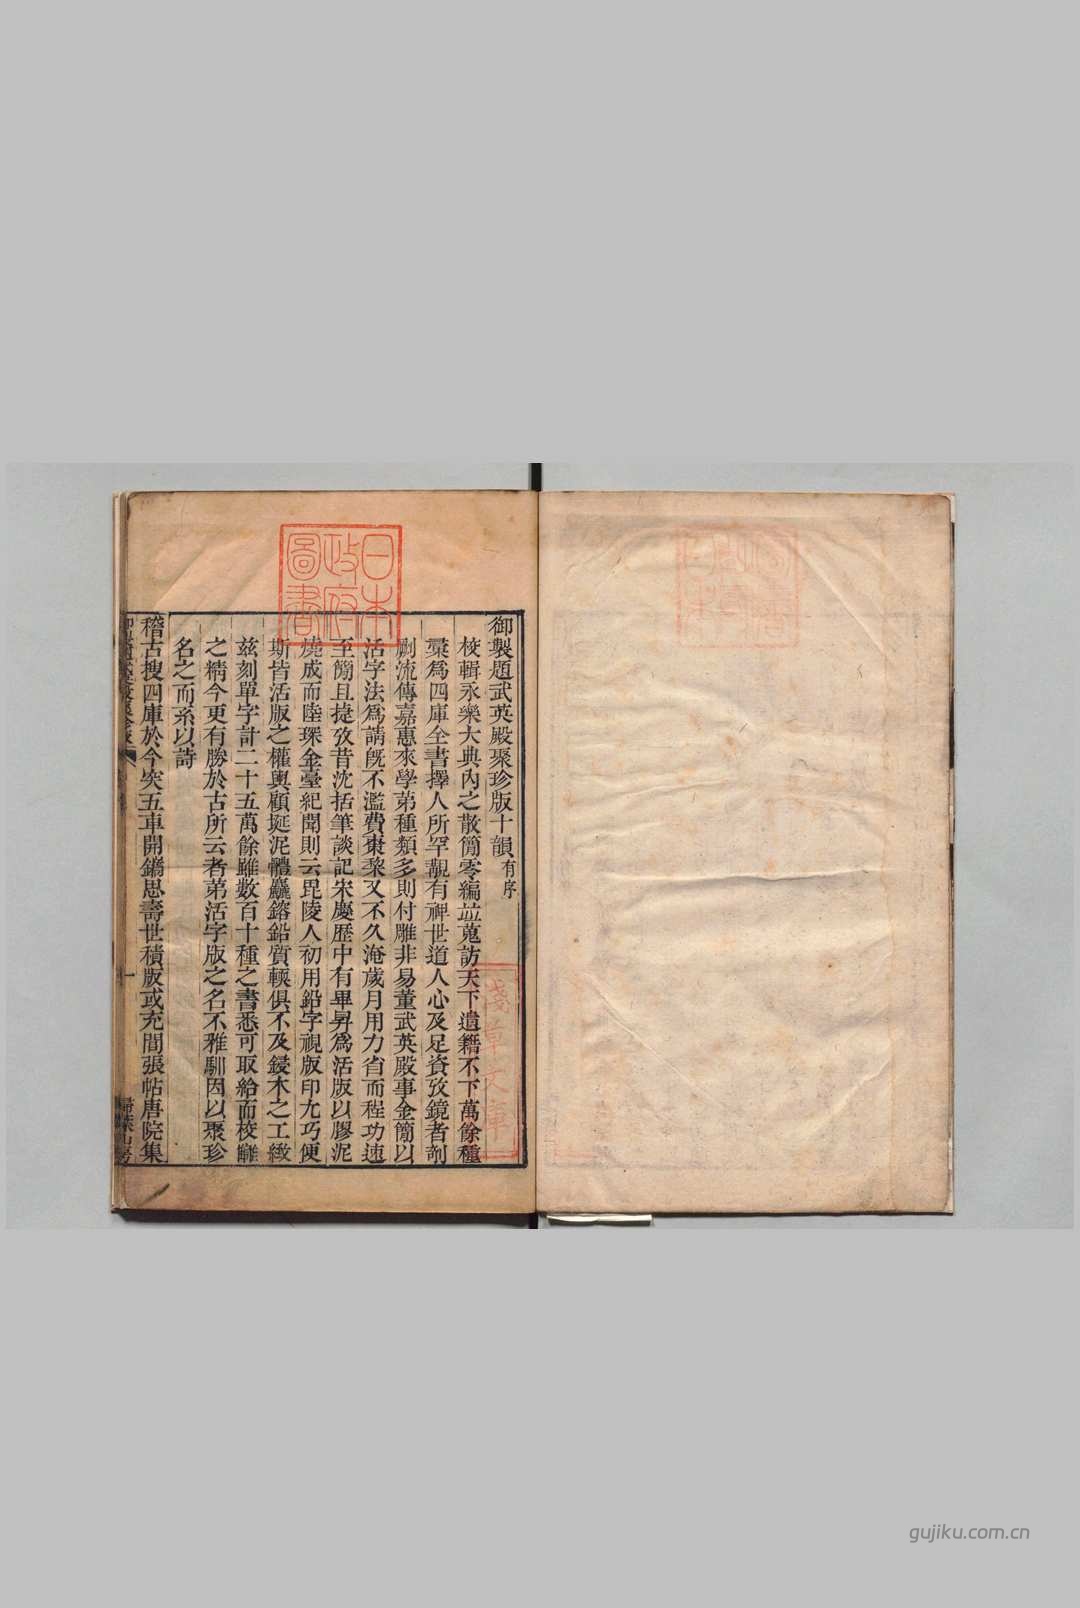 御製題武英殿聚珍版十韻有序
校輯永樂大典內之散簡零編並蒐訪天下遺籍不下萬餘種
彚為四庫全書擇人所罕覯有裨世道人心及足資攷鏡者剞
劂流傳嘉惠來學第種類多則付雕非易董武英殿事金簡以
活字法為請旣不濫費棗棃又不久淹歲月用力省而程功速
至簡且捷攷昔沈括筆談記宋慶歷中有畢昇為活版以膠泥
燒成而陸深金臺紀聞則云毘陵人初用鉛字視版印尤巧便
斯皆活版之權輿顧埏泥體麤鎔鉛質輭俱不及鋟木之工緻
兹刻單字計二十五萬餘雖數百十種之書悉可取給而校讎
之精今更有勝於古所云者第活字版之名不雅馴因以聚珍
名之而系以詩
稽古搜四庫於今突五車開鐫思壽世積版或充閭張帖唐院集
一
日本政府圖書
淺草文庫
gujiku.com.cn